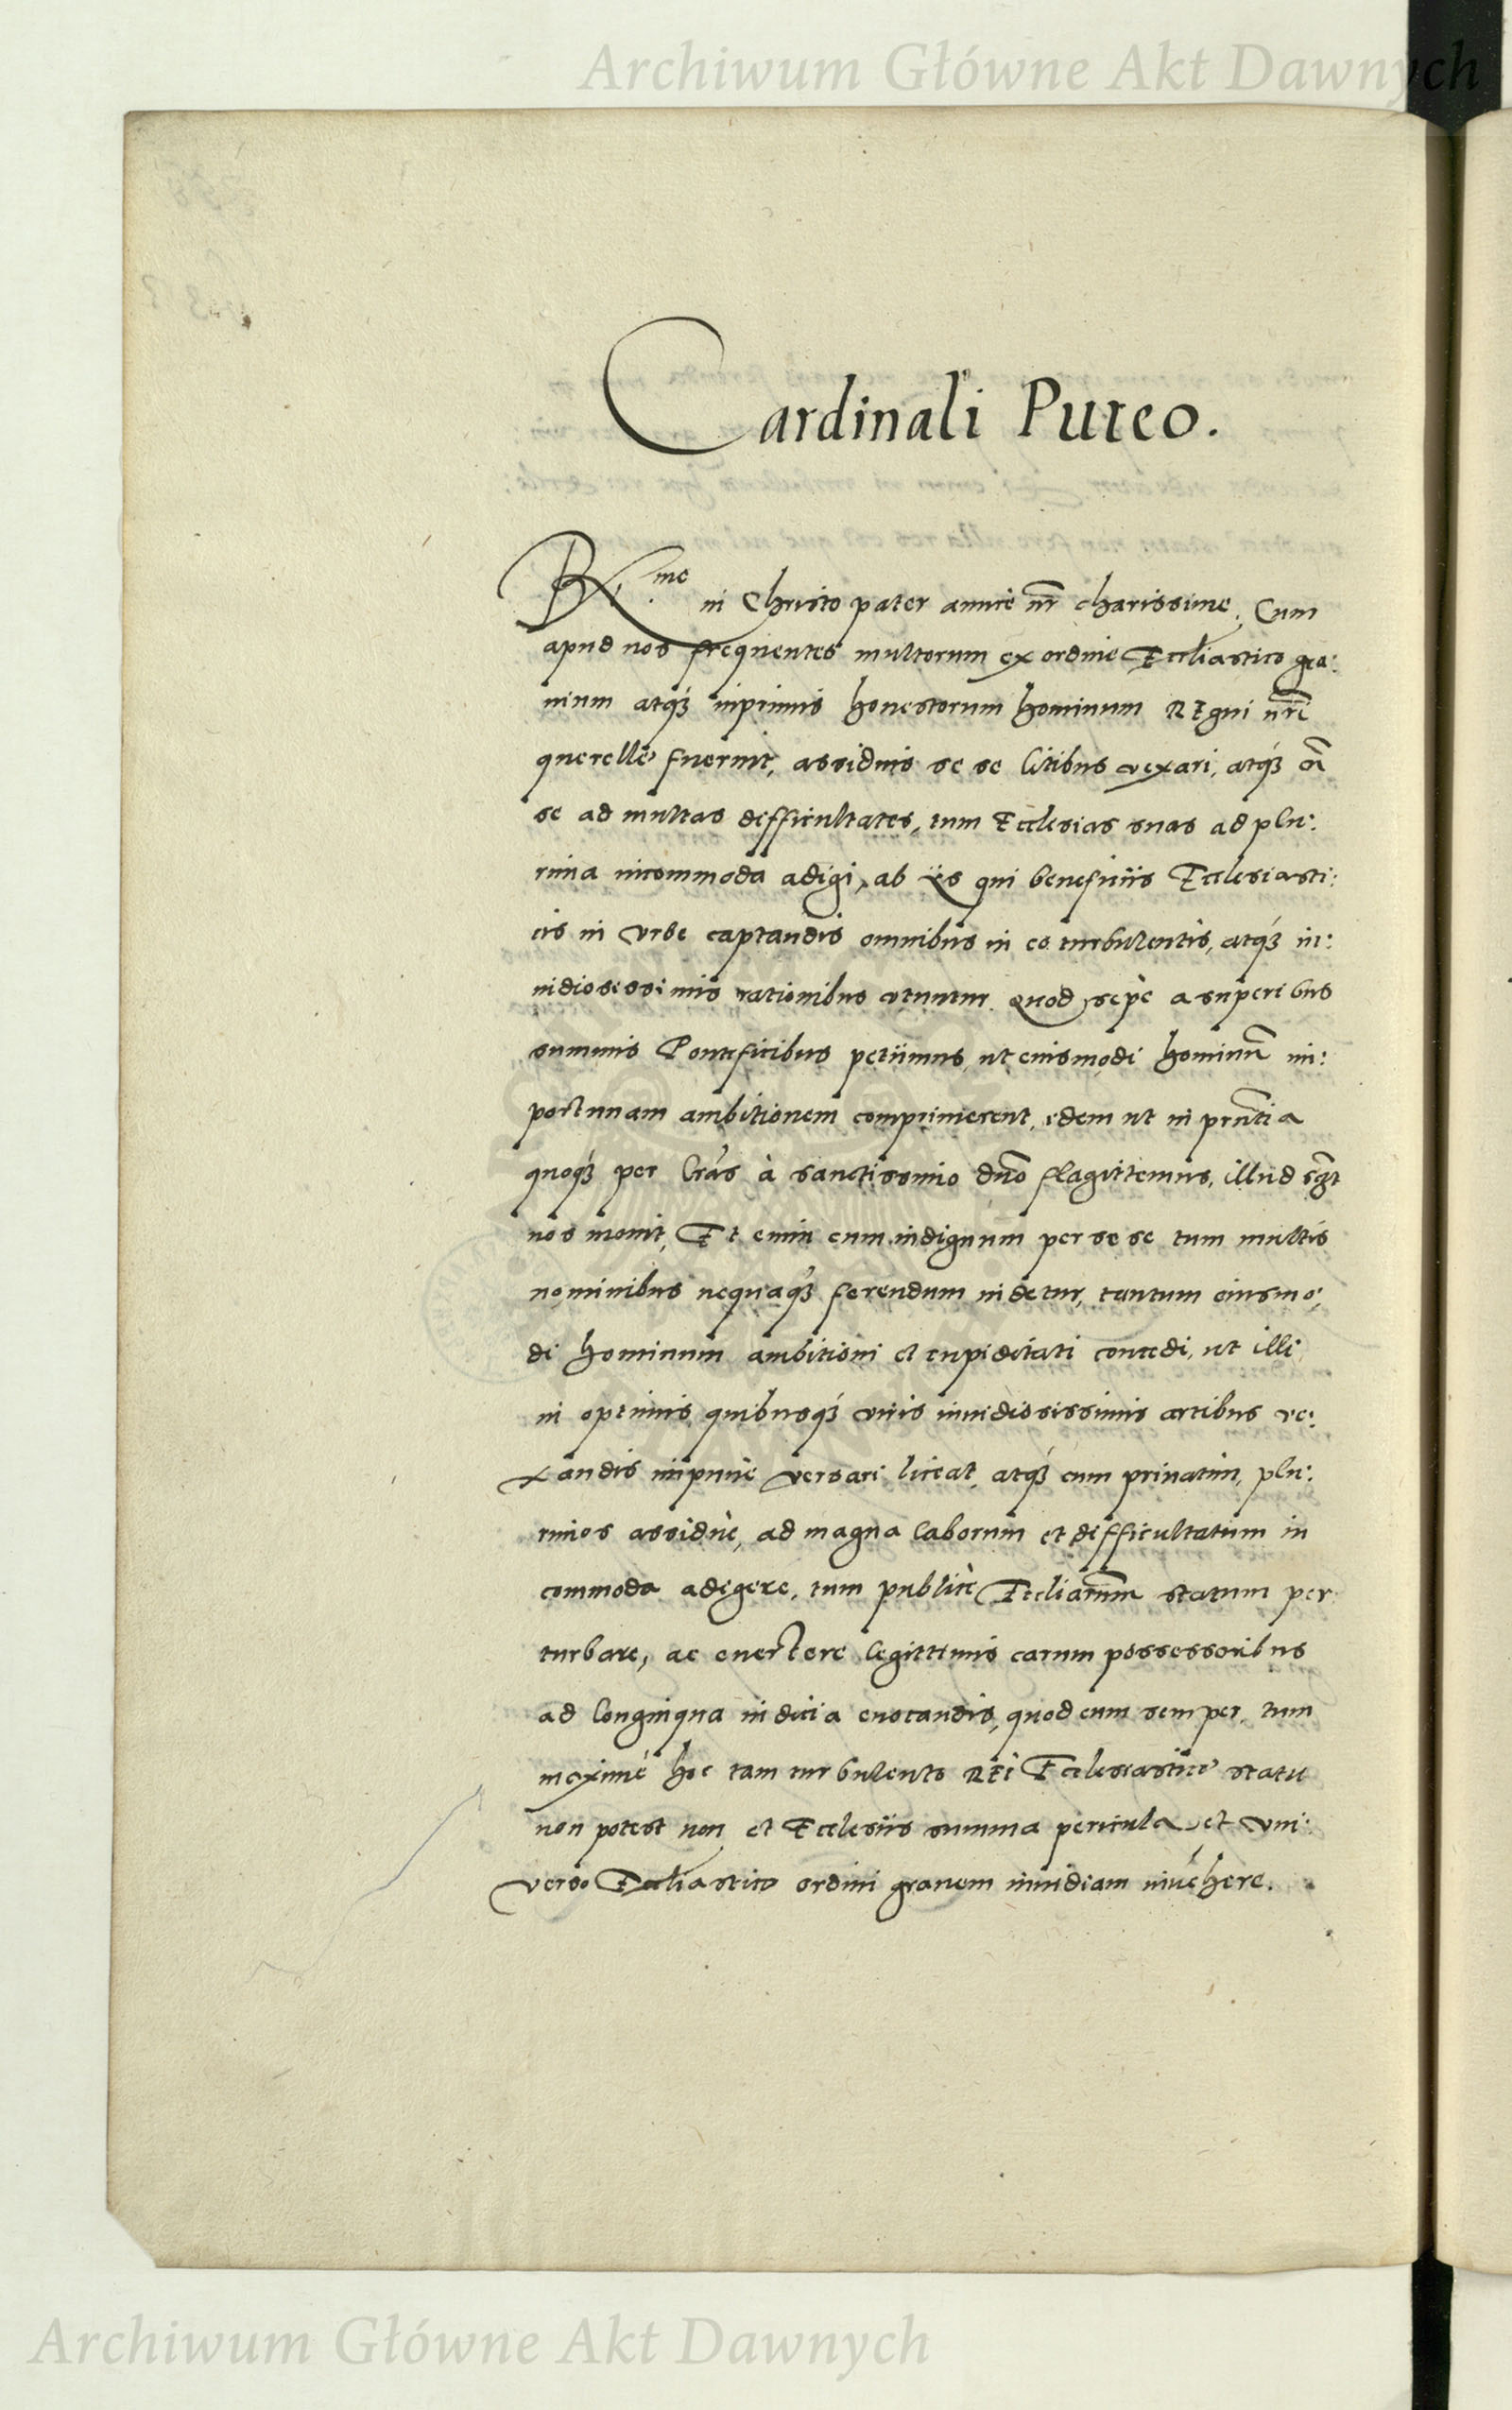 Archiwum Główne Akt Dawnych
Cardinali Puteo.
R.me in Christo pater amice nr̄ charissime, Cum
apud nos frequentes multorum ex ordine Eccliastico gra:
uium atq́ʒ inprimis honestorum hominum REgni nr̄i
querelle fuerint, assiduis se se litibus vexari, atq́ʒ
se ad multas difficultates, tum Ecclesias suas ad plu:
rima incommoda adigi, ab ijs qui beneficiis Ecclesiasti:
cis in vrbe captandis omnibus in eo turbulentis, atq́ʒ in:
uidiosissimis rationibus vtuntur. Quod sepè a superibus
summis Pontificibus petiimus, ut eiusmodi hominū im:
portunam ambitionem comprimerent, idem ut in prn̄tia
quoq́ʒ per lrā́s à sanctissimo dn̄o flagittemus, illud
nos monit, Et enim cum indignum per se se tum multis
nominibus nequaq́ʒ ferendum uidetur, tantum eiusmo:
di hominum ambitioni et cupiditati concedi, ut illi
in optimis quibusq́ʒ viris inuidiosissimis artibus ve:
xandis impunè versari liceat, atq́ʒ cum priuatim, plu:
rimos assiduè, ad magna laborum et difficultatum in
commoda adigere, tum publicè Eccliarum statum per
turbare, ac euertere legittimis earum possessoribus
ad longinqua iudicia euocandis, quod cum semper, tum
maximè hoc tam turbulento REi Ecclesiastice statu
non potest non et Ecclesiis summa pericula et vni:
verso Eccliastico ordini grauem inuidiam inuehere.
Archiwum Główne Akt Dawnych